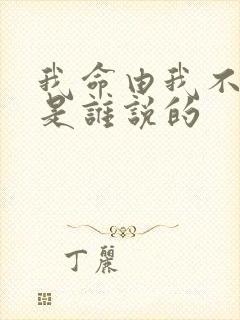 我命由我不
是誰説的
丁麗